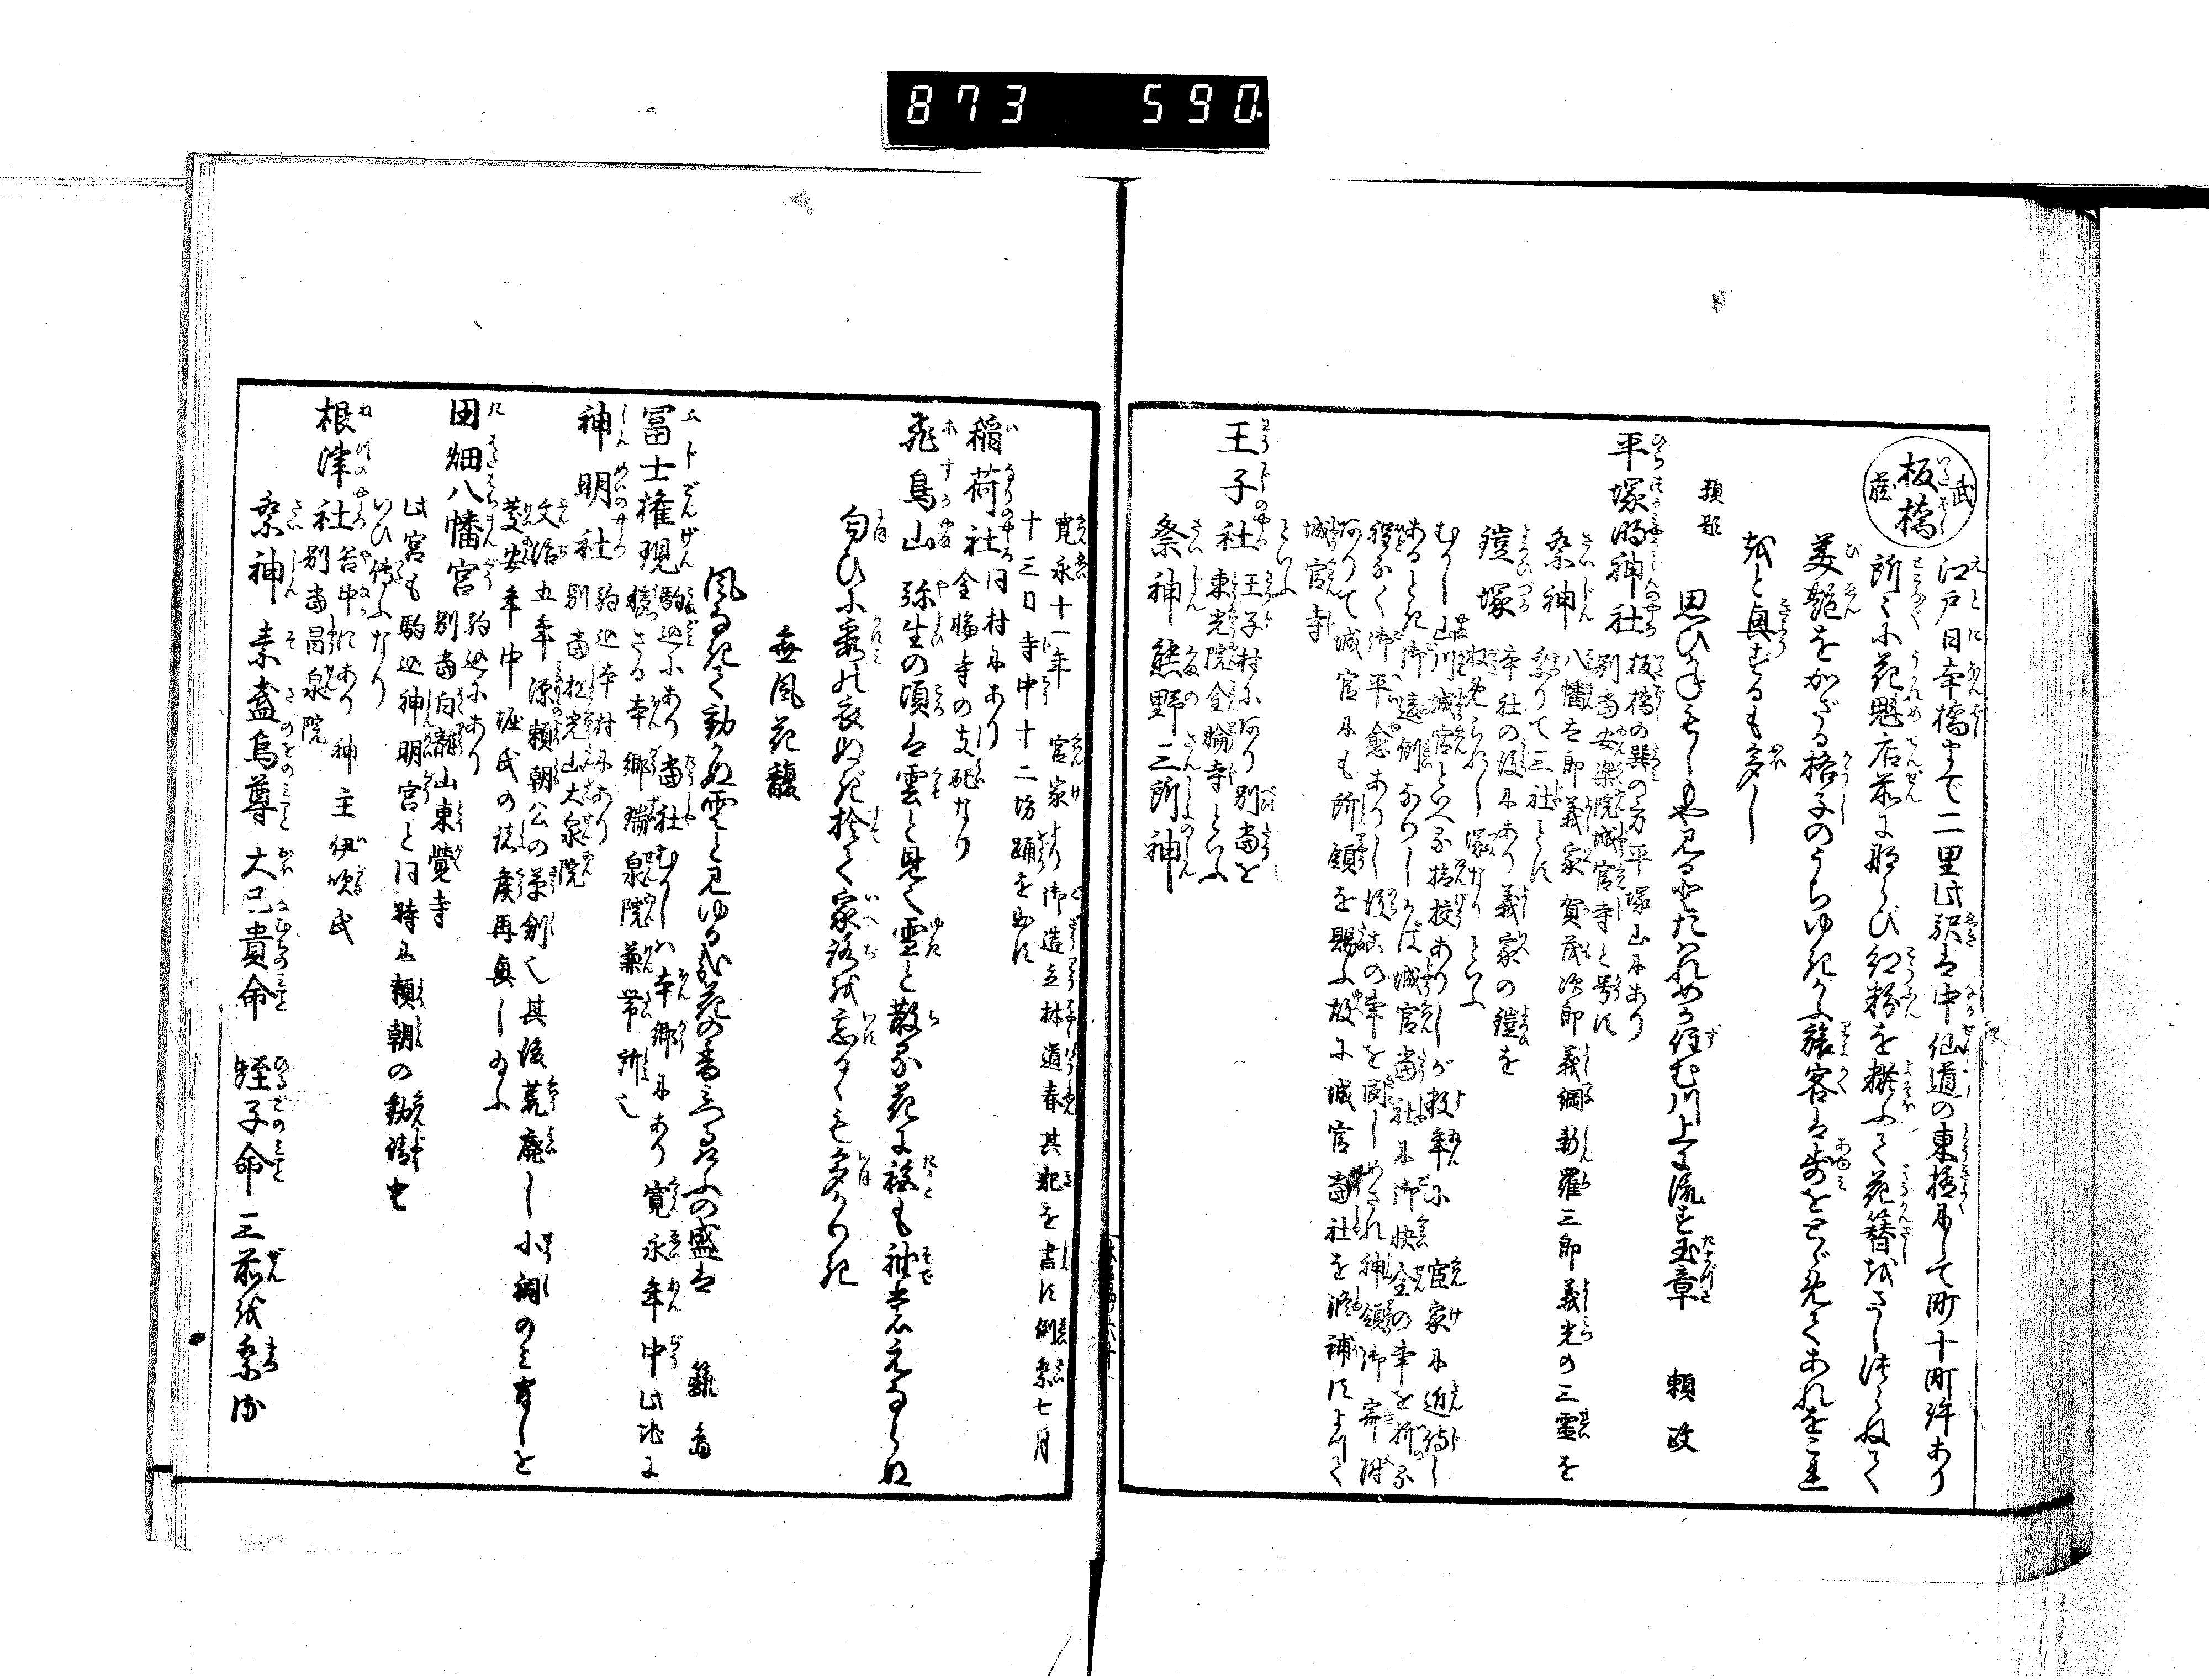 873 590
武蔵 板橋
江戸日本橋まで二里此駅は中仙道の東極にして町十町許あり
所々に花魁店前に那らび紅粉を粧ふて花簪をさしつらねて
美艶をかざる格子のうちゆきかふ旅客は歩をとゞめてあれをこれ
をと興ずるも多し
類題
思ひかねもしや見るとたはれめか住む川上に流す玉章 頼政
平塚明神社 板橋の巽の方平塚山にあり
別当安楽院城官寺と号す
祭神 八幡太郎義家賀茂次郎義綱新羅三郎義光の三霊を
祭りて三社とす
鎧塚 本社の後にあり義家の鎧を
収られし塚なりといふ
むかし山川城官といへる検校ありしが数年に 官家に近侍し
あるとき御違例ありしかば城官当社に御快全の事を祈る
程なく御平愈ありし後此の事を聞しめされ神領御寄附
ありて城官にも所領を賜ふ故に城官当社を修補すよつて
城官寺
といふ
王子社 王子村にあり別当を
東光院金輪寺といふ
祭神 熊野三所神
寛永十一年 官家より御造立林道春其記を書す例祭七月
十三日寺中十二坊踊を出す
稲荷社 同村にあり
金輪寺の支配なり
飛鳥山 弥生の頃は雲と見て雪と散る花に袂も袖も
匂ひに霞の衣ぬぎ捨て家路を忘るゝも多かりき
無風花馥
風なきて動かぬ雲と見ゆる
の盛は 雞島
冨士権現 駒込にあり当社むかしハ本郷にあり寛永年中此地に
移さる本郷瑞泉院兼帯所也
神明社 駒込本村にあり
別当松光山大泉院
文治五年源頼朝公の草創也其後荒廃し小祠のミなりしを
慶安年中堀氏の諸侯再興し給ふ
田畑八幡宮 駒込にあり
別当白龍山東覚寺
此宮も駒込神明宮と同時に頼朝の勧請と
いひ傳ふなり
根津社 谷中にあり神主伊吹氏
別当昌泉院
祭神 素盞烏尊 大己貴命 蛭子命 三前を祭る